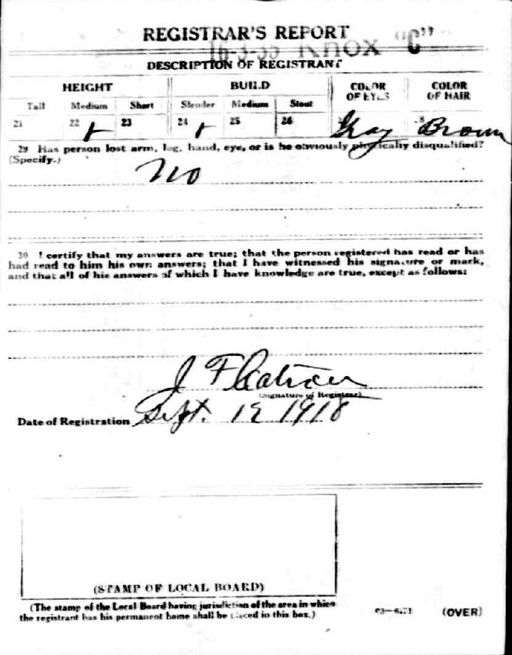 REGISTRAR'S REPORT
16-3-33 Knox "C"
DESCRIPTION OF REGISTRANT
HEIGHT BUILD COLOR OF EYES COLOR OF HAIR
Tall Medium Short Slender Medium Stout
21 22 x 23 24 x 25 26 Gray Brown
29 Has person lost arm, leg, hand, eye, or is he obviously physically disqualified?
(Specify.) No
30 I certify that my answers are true; that the person registered has read or has
had read to him his own answers; that I have witnessed his signature or mark,
and that all of his answers of which I have knowledge are true, except as follows:
J F
(Signature of Registrar)
Date of Registration Sept. 12 1918
(STAMP OF LOCAL BOARD)
(The stamp of the Local Board having jurisdiction of the area in which
the registrant has his permanent home shall be placed in this box.)
03-6171 (OVER)